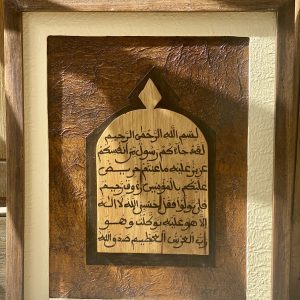 بسم الله الرحمن الرحيم
لقد جاءكم رسول من انفسكم
عزيز عليه ما عنتم حريص
عليكم بالمؤمنين رؤوف رحيم
فإن تولوا فقل حسبي الله لا اله
إلا هو عليه توكلت وهو
رب العرش العظيم